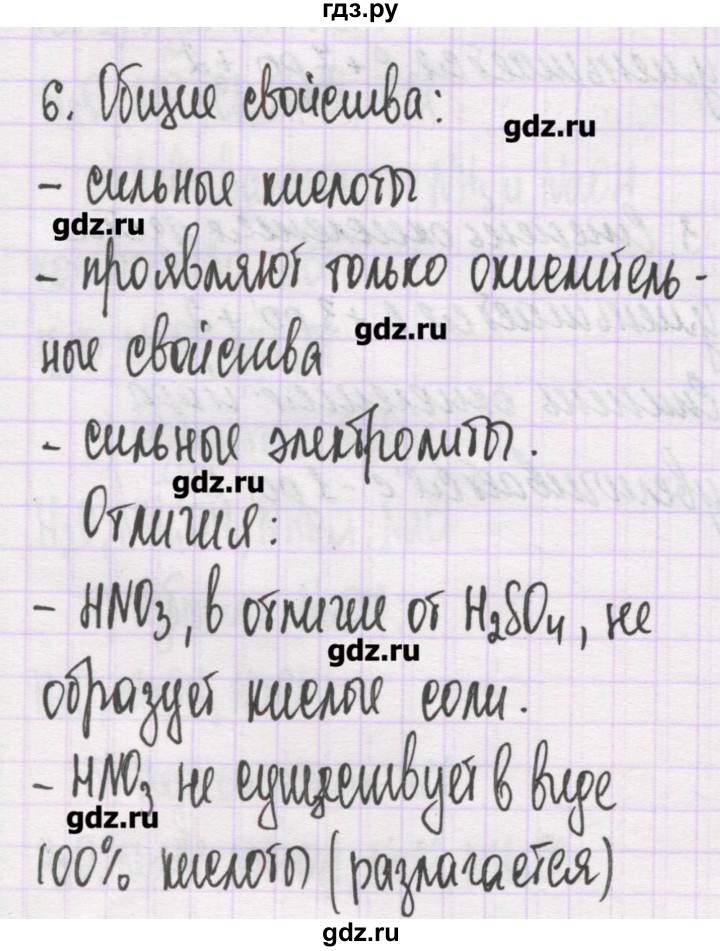 гдз.ру
6. Общие свойства:
gdz.ru
- сильные кислоты
gdz.ru
- проявляют только окислитель-
gdz.ru
ные свойства
- сильные электролиты.
gdz.ru
Отличия:
- HNO3, в отличие от H2SO4, не
gdz.ru
образует кислые соли.
- HNO3 не существует в виде
gdz.ru
100% кислоты (разлагается)
gdz.ru